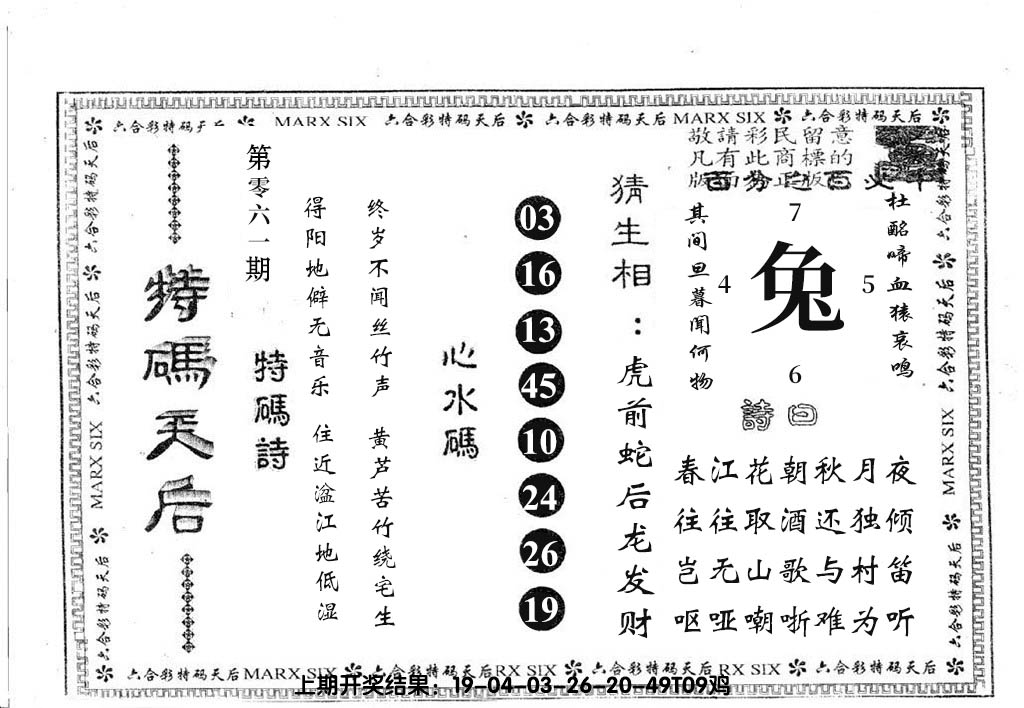 六合彩特码天后 MARX SIX 六合彩特码天后 六合彩特码天后 MARX SIX 六合彩特码天后
敬請彩民留意
凡有此商標的
版面為正版
特碼天后
第零六一期
特碼詩
得阳地僻无音乐 住近湓江地低湿
终岁不闻丝竹声 黄芦苦竹绕宅生
心水碼
03
16
13
45
10
24
26
19
猜生相:虎前蛇后龙发财
其间旦暮闻何物
杜酩啼血猿哀鸣
7
4
兔
5
6
詩曰
春江花朝秋月夜
往往取酒还独倾
岂无山歌与村笛
呕哑嘲哳难为听
六合彩特码天后 MARX SIX 六合彩特码天后
六合彩特码天后 MARX SIX 六合彩特码天后
六合彩特码天后 MARX SIX 六合彩特码天后RX SIX 六合彩特码天后 RX SIX 六合彩特码天后
上期开奖结果：19-04-03-26-20-49T09鸡